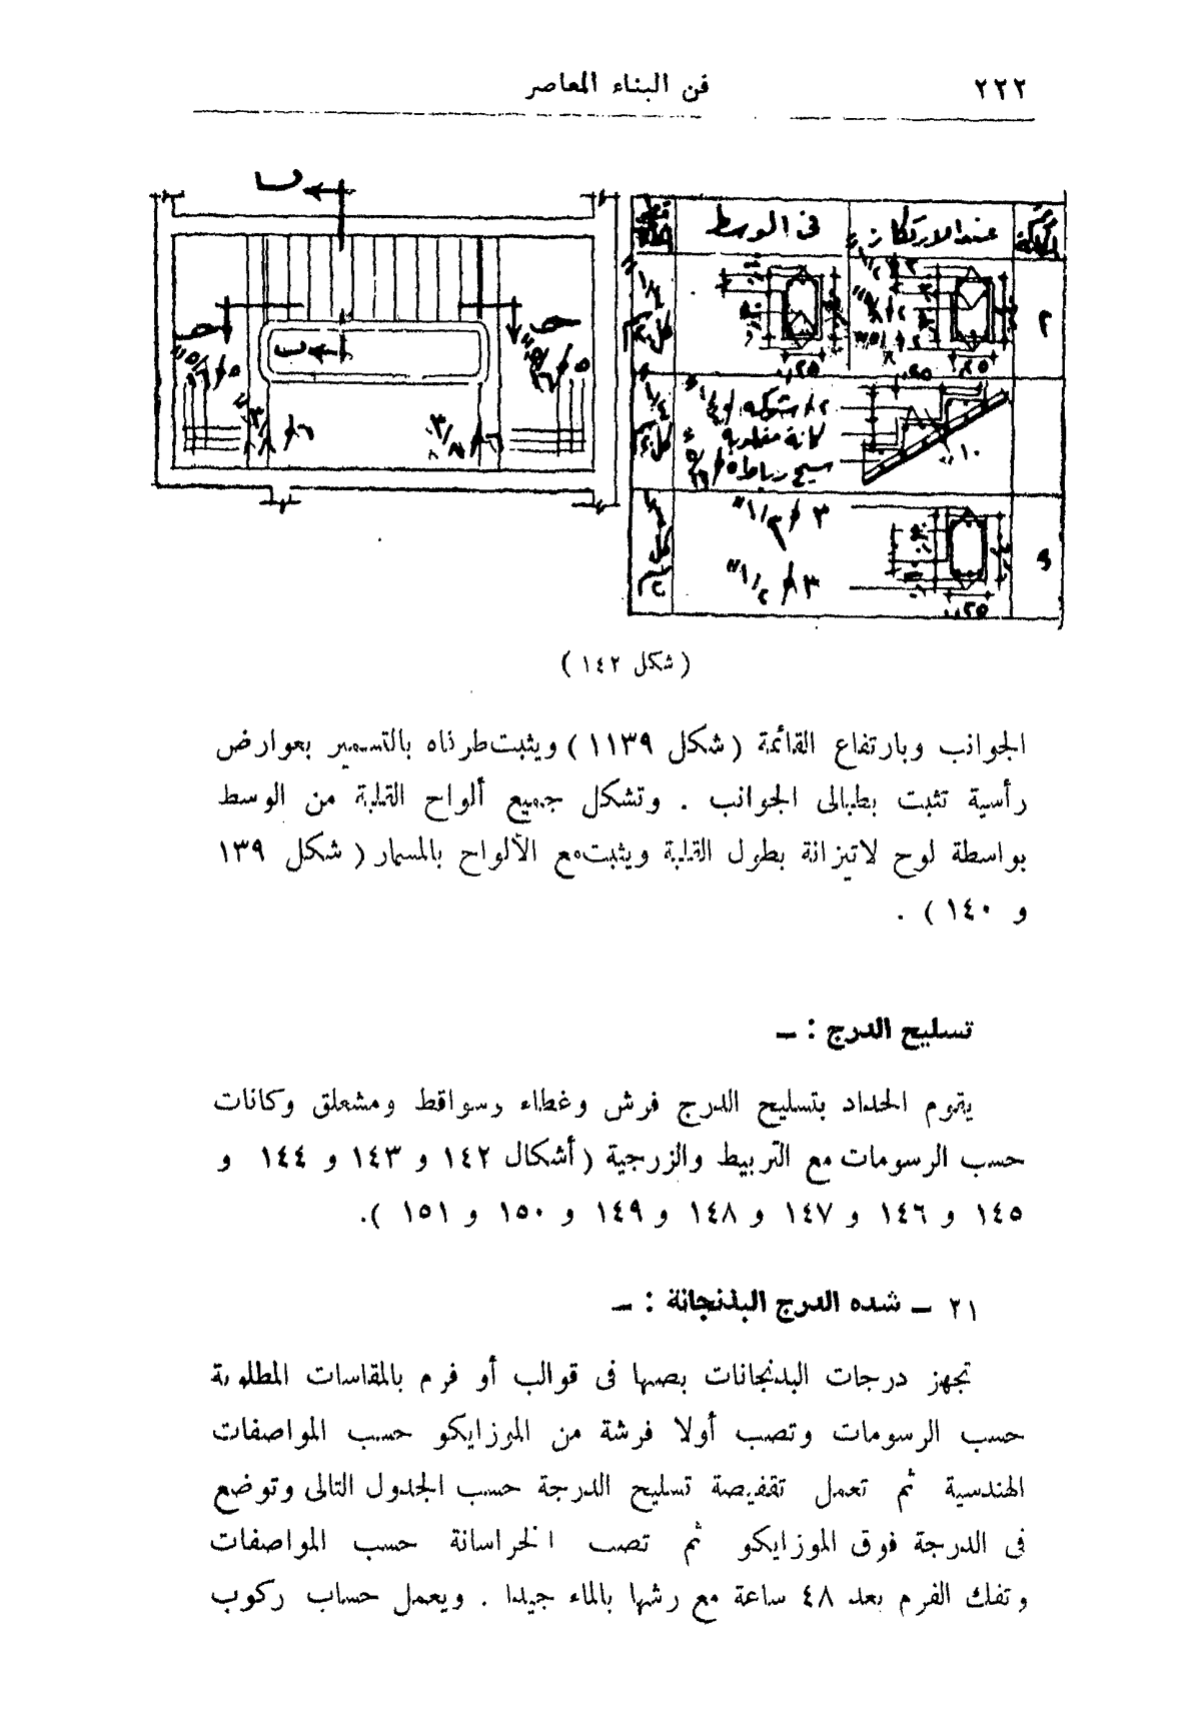 ٢٢٢
فن البناء المعاصر
عند الارتكاز
فى الوسط
كانة مقلوبة
( شكل ١٤٢ )
الجوانب وبارتفاع القائمة ( شكل ١١٣٩ ) ويثبت طرفاه بالتسمير بعوارض
رأسية تثبت بطبالى الجوانب . وتشكل جميع ألواح القلبة من الوسط
بواسطة لوح لاتيزانة بطول القلبة ويثبت مع الألواح بالمسمار ( شكل ١٣٩
و ١٤٠ ) .
تسليح الدرج : ـ
يقوم الحداد بتسليح الدرج فرش وغطاء وسواقط ومشعلق وكانات
حسب الرسومات مع التربيط والزرجية ( أشكال ١٤٢ و ١٤٣ و ١٤٤ و
١٤٥ و ١٤٦ و ١٤٧ و ١٤٨ و ١٤٩ و ١٥٠ و ١٥١ ).
٢١ ـ شده الدرج البدنجانة : ـ
تجهز درجات البدنجانات بصبها فى قوالب أو فرم بالمقاسات المطلوبة
حسب الرسومات وتصب أولا فرشة من الموزايكو حسب المواصفات
الهندسية ثم تعمل تقفيصة تسليح الدرجة حسب الجدول التالى وتوضع
فى الدرجة فوق الموزايكو ثم تصب الخراسانة حسب المواصفات
وتفك الفرم بعد ٤٨ ساعة مع رشها بالماء جيدا . ويعمل حساب ركوب